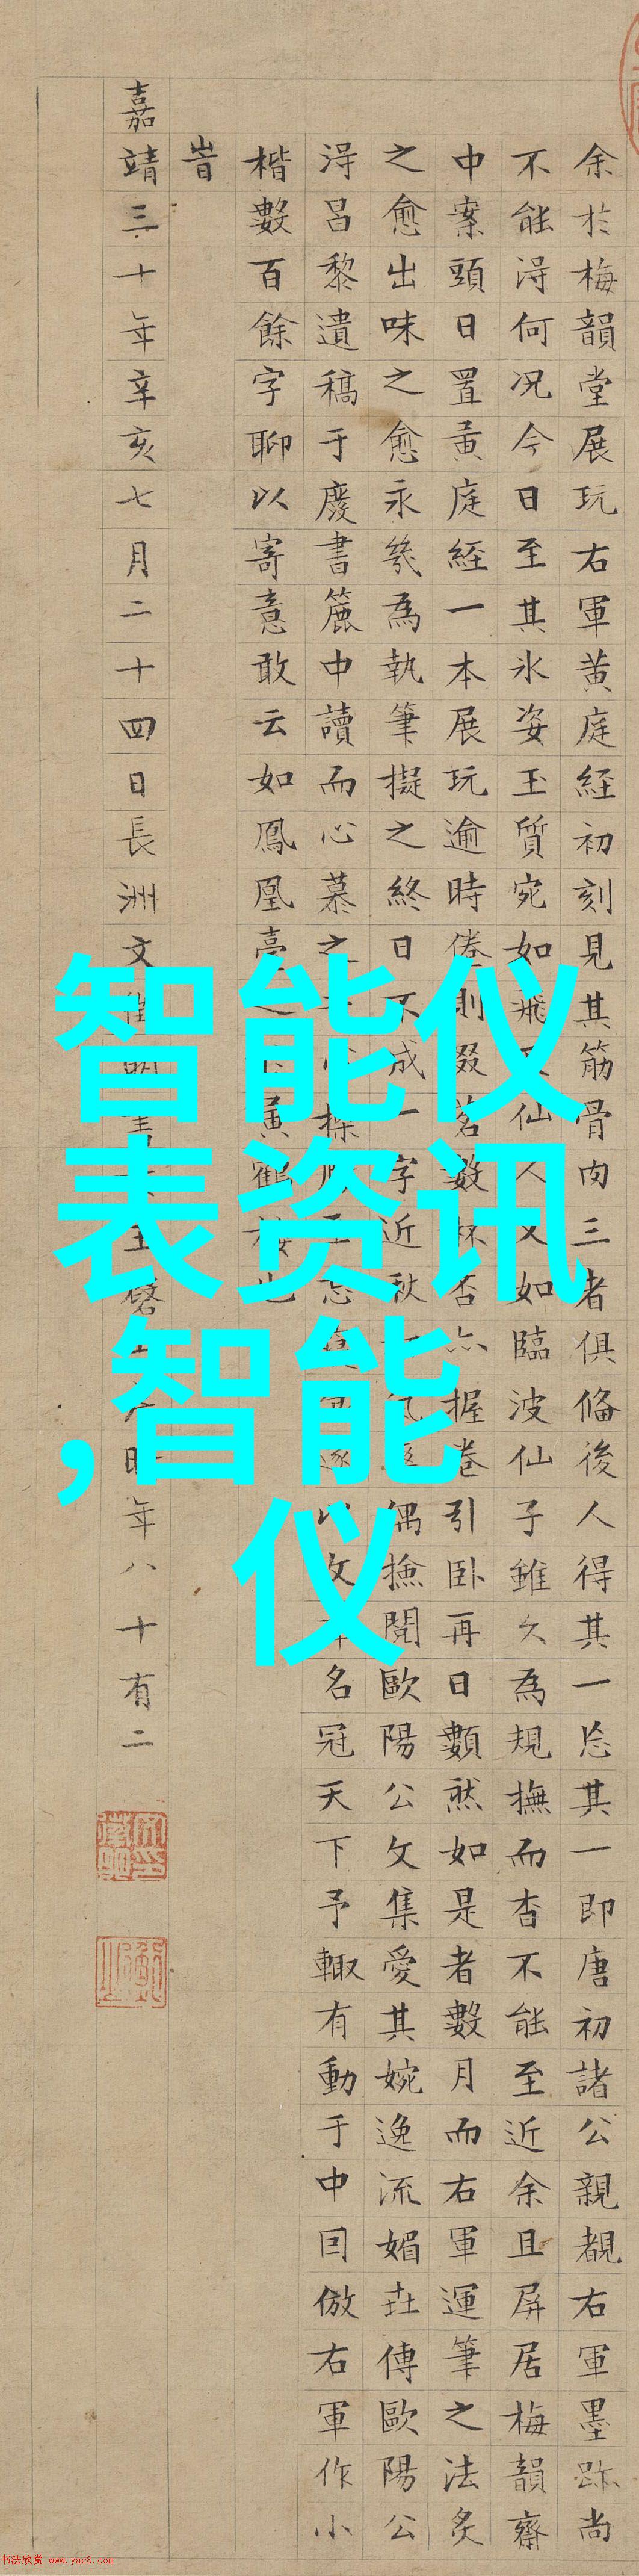 余於梅韻堂展玩右軍黄庭經初刻見其筋骨肉三者俱俻後人得其一忘其一即唐初諸公親覩右軍墨跡尚
不能淂何况今日至其氷姿玉質宛如飛仙人又如臨波仙子雖久為規撫而杳不能至近余且屏居梅韻齋
中案頭日置黄庭經一本展玩逾時倦則啜茗數杯否亦握卷引卧再日數然如是者數月而右軍運筆之法炙
之愈出味之愈永幾為執筆擬之終日不成一字近秋偶撿閱歐陽公文集愛其婉逸流媚因傳歐陽公
淂昌黎遺稿于廢書簏中讀而心慕之以文章名冠天下予輙有動于中因倣右軍作小
楷數百餘字聊以寄意敢云如鳳凰臺黄鶴樓也
旹
嘉靖三十年辛亥七月二十四日長洲文徵明書玉磬山房時年八十有二
智能仪
表资讯
,智能
仪
书法欣赏 www.yac8.com